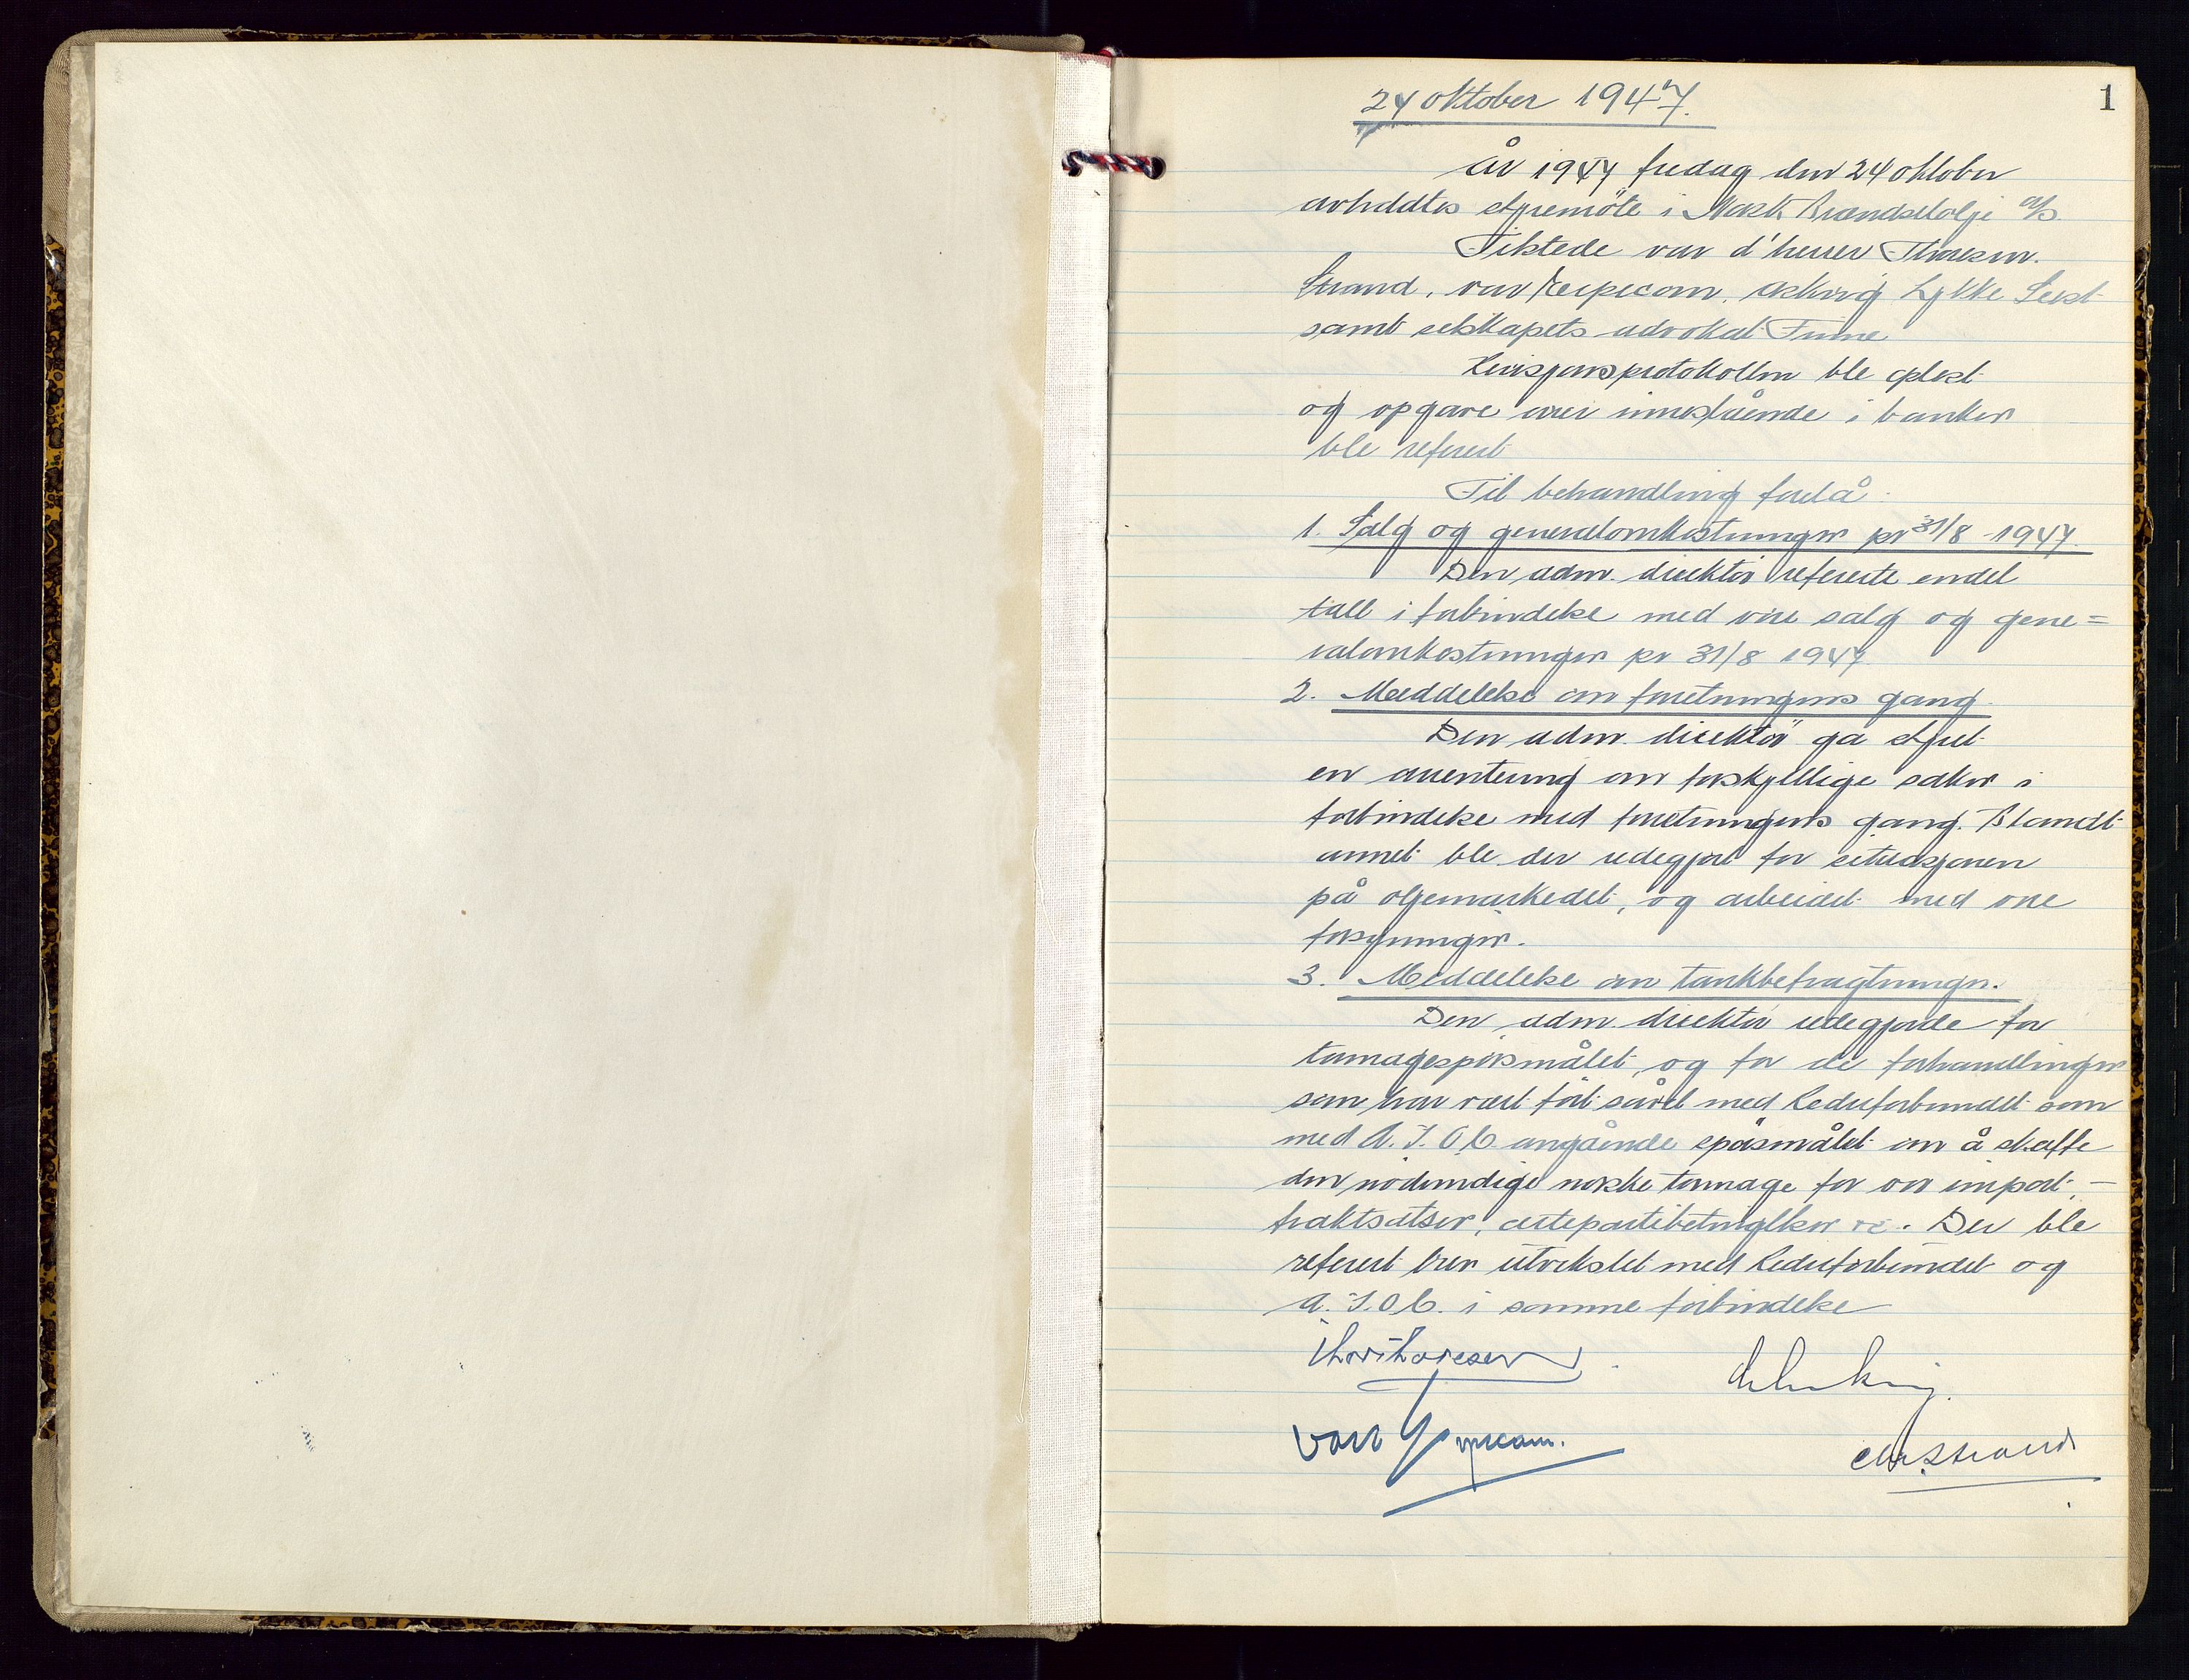 1
24 oktober 1947.
År 1947 fredag den 24 oktober
avholdtes styremöte i Norsk Brændselolje A/S.
Tilstede var d'herrer Thoresen.
Strand, van
samt selskapets advokat
Revisjonsprotokollen ble oplest
og opgave over innestående i banker
ble referert
Til behandling forelå
1. Salg og generalomkostninger pr 31/8 - 1947.
Den adm. direktör refererte endel
tall i forbindelse med våre salg og gene=
ralomkostninger pr 31/8 1947.
2. Meddelelse om forretningens gang.
Den adm. direktör ga styret
en orientering om forskjellige saker i
forbindelse med forretningens gang. Blandt
annet ble der redegjort for situasjonen
på oljemarkedet, og arbeidet med våre
forsyninger.
3. Meddelelse om tankbefragtninger.
Den adm. direktör redegjorde for
tonnagespörsmålet, og for de forhandlinger
som har vært fört såvel med Rederforbundet som
med A.I.O.C. angående spörsmålet om å skaffe
den nödvendige norske tonnage for vår import, -
fraktsatser, certepartibetingelser . Der ble
referert brev utvekslet med Rederforbundet og
A.I.O.C. i samme forbindelse
Thor Thoresen
van
Chr. Strand